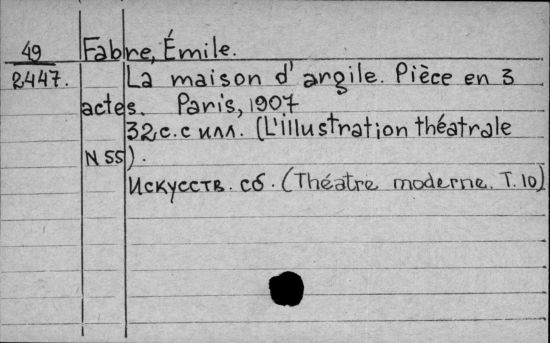 49 Fabre, Émile.
2447. La maison d'argile. Pièce en 3
actes. Paris, 1907
32 с. с илл. (L'illustration théatrale
N 55).
Искусств. сб. (Théatre moderne. T. 10)